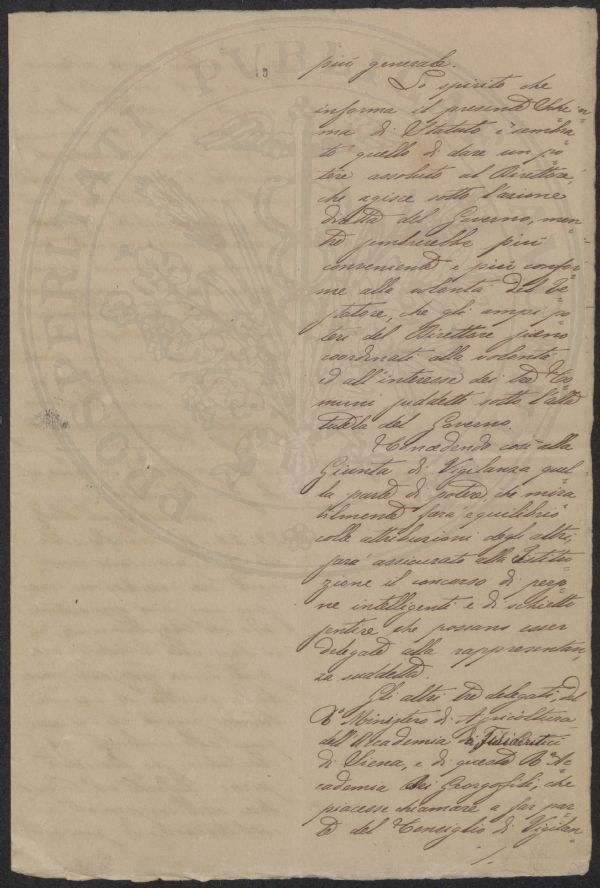 più generale.
Lo spirito che
informa il presente Sche=
ma di Statuto è sembra
to quello di dare un po=
tere assoluto al Direttore,
che agisce sotto l'azione
diretta del Governo, men=
tre sembrerebbe più
conveniente e più confor=
me alla volontà del Te=
statore, che gli ampi po=
teri del Direttore siano
coordinati alla volontà
ed all'interesse dei tre Co=
muni suddetti sotto l'alta
tutela del Governo.
Concedendo così alla
Giunta di Vigilanza quel
la parte di potere che mira
bilmente farà equilibrio
colle attribuzioni degli altri,
sarà assicurato alla Istitu
zione il concorso di perso=
ne intelligenti e di schietto
sentire che possano esser
delegate alla rappresentan
za suddetta.
Gli altri tre delegati, del
R.º Ministero di Agricoltura
dell'Accademia dei Fisiocritici
di Siena, e di questa R.ª Ac=
cademia dei Georgofili, che
piacesse chiamare a far par=
te del Consiglio di Vigilan=
./.
PROSPERITATI PVBLICAE